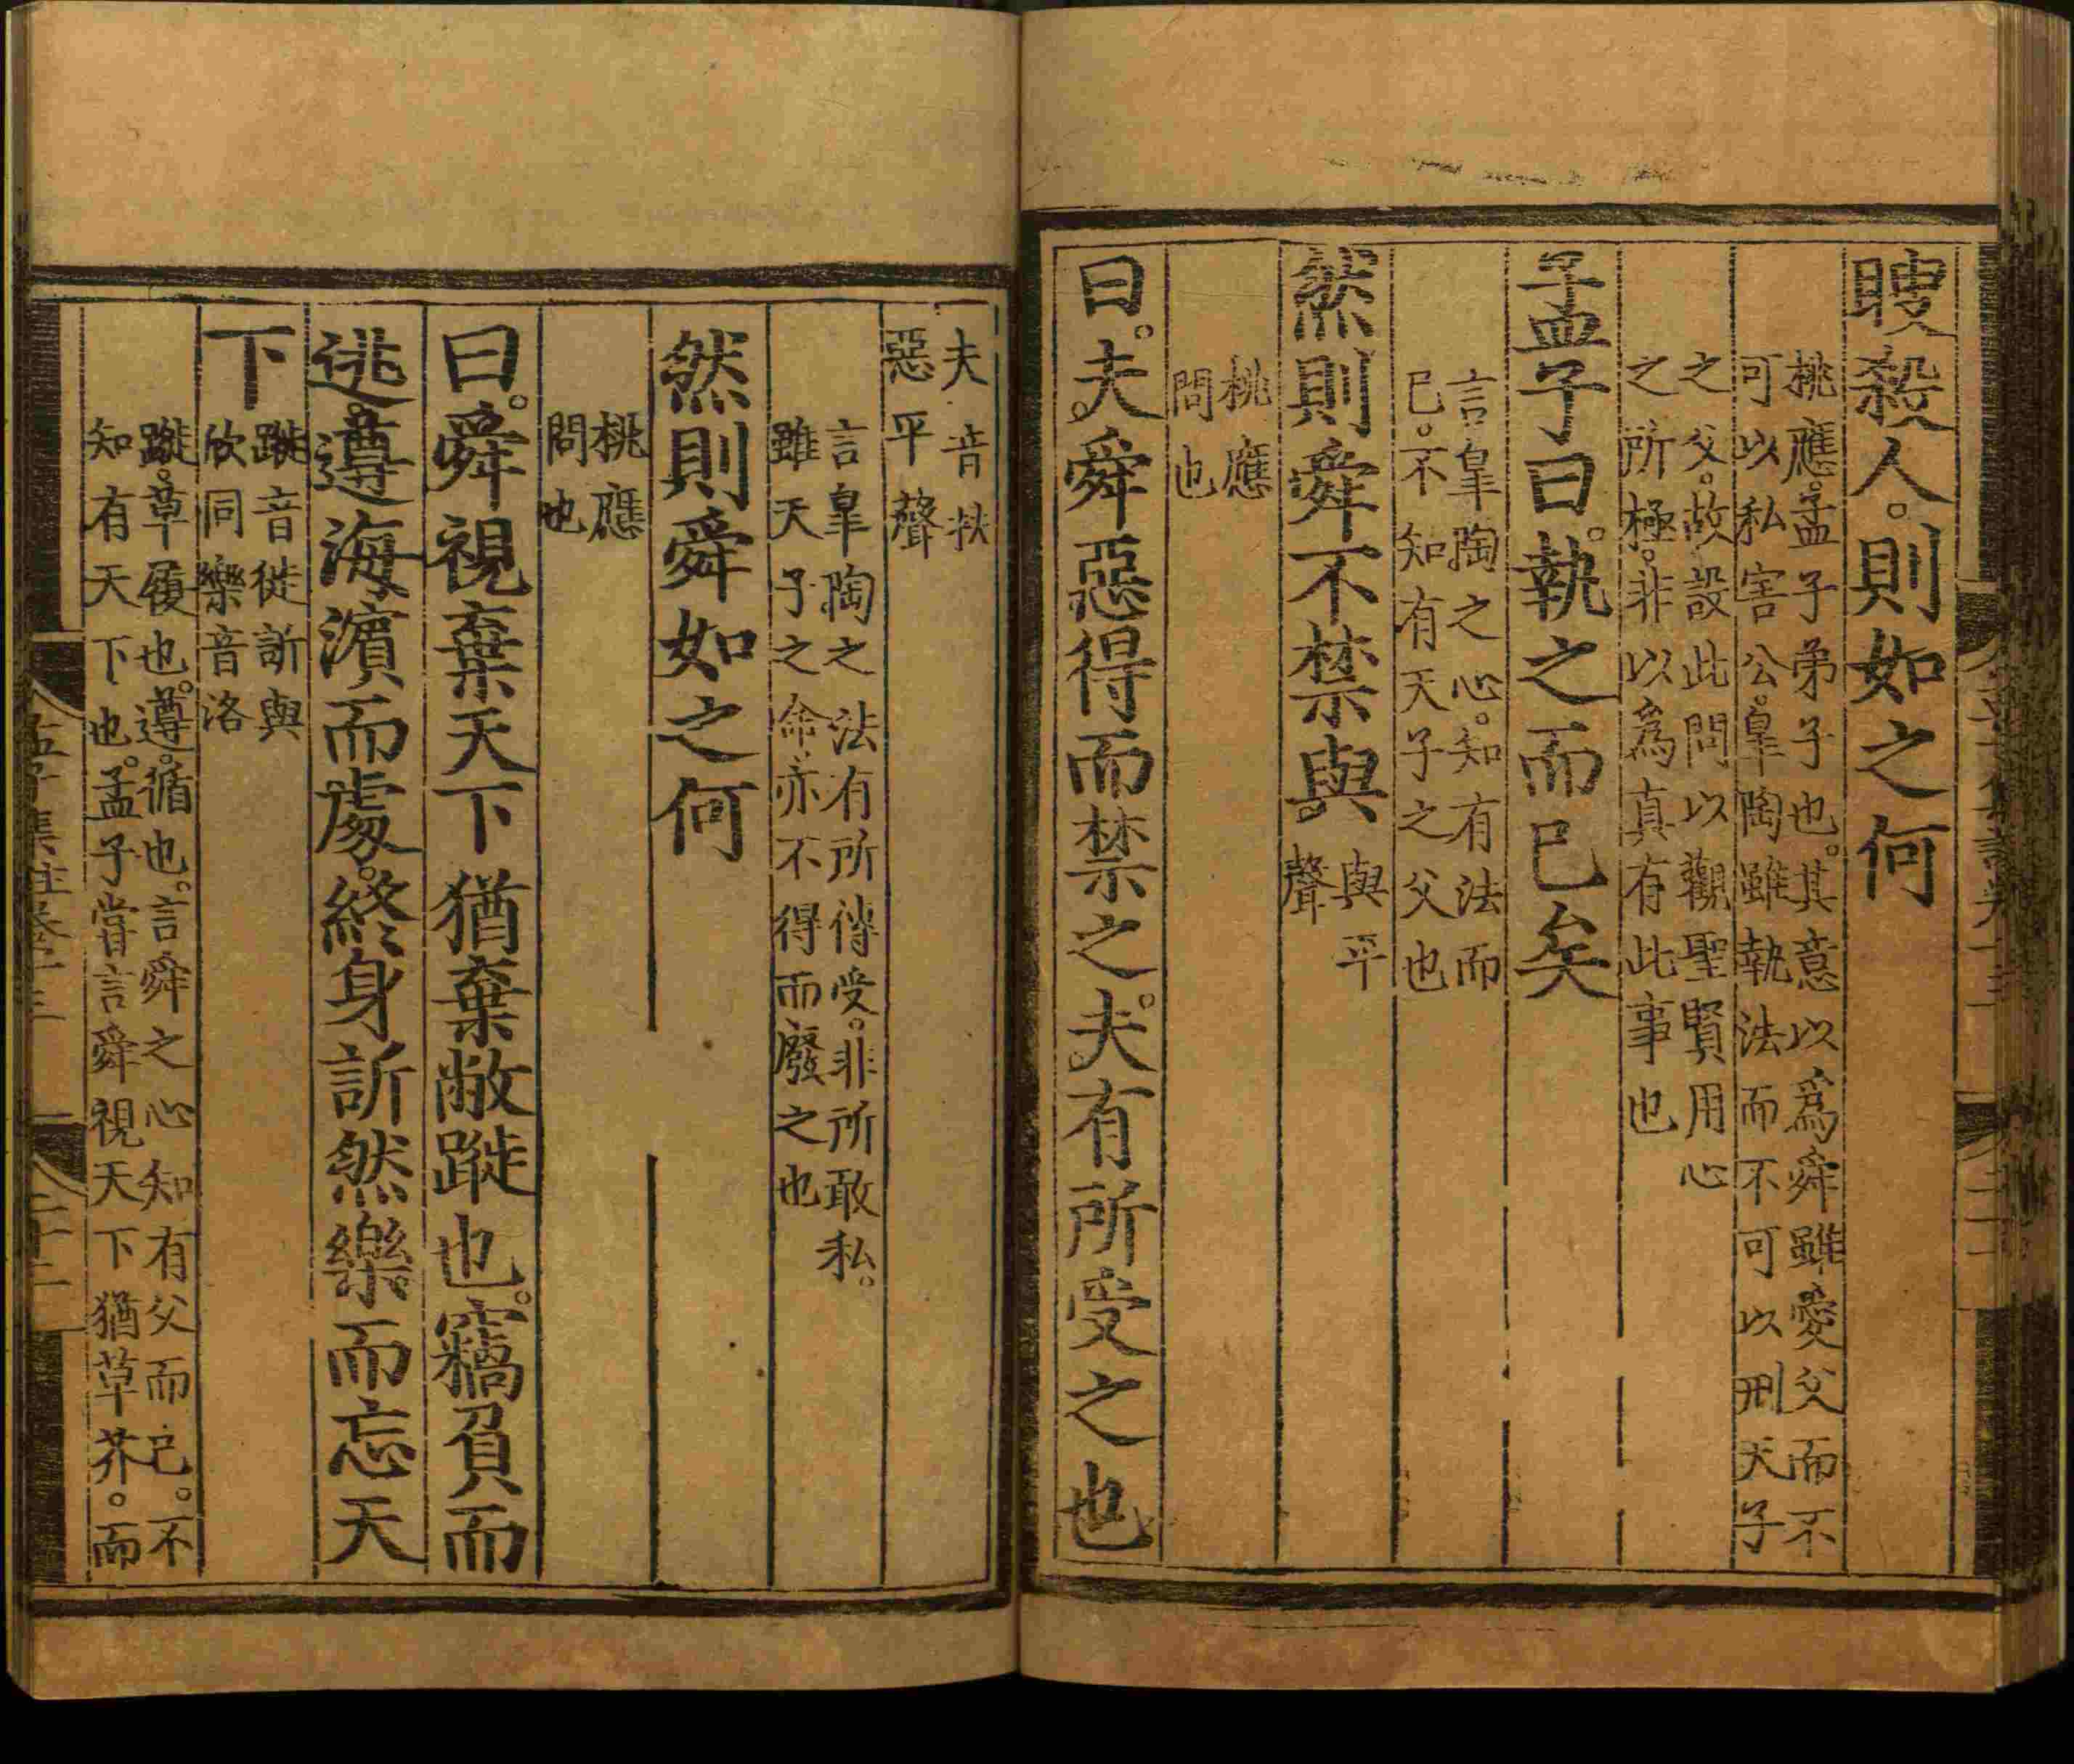 瞍殺人。則如之何
桃應。孟子弟子也。其意以爲舜雖愛父而不
可以私害公。皐陶雖執法而不可以刑天子
之父。故設此問以觀聖賢用心
之所極。非以爲真有此事也
孟子曰。執之而已矣
言皐陶之心。知有法而
已。不知有天子之父也
然則舜不禁與
與平
聲
桃應
問也
曰。夫舜惡得而禁之。夫有所受之也
夫音扶
惡平聲
言皐陶之法有所傳受。非所敢私。
雖天子之命、亦不得而廢之也
然則舜如之何
桃應
問也
曰。舜視棄天下猶棄敝蹝也。竊負而
逃。遵海濱而處。終身訢然樂而忘天
下
蹝音徙訢與
欣同樂音洛
蹝。草履也。遵。循也。言舜之心知有父而已。不
知有天下也。孟子嘗言舜視天下猶草芥。而
孟子集註卷十三
二十二